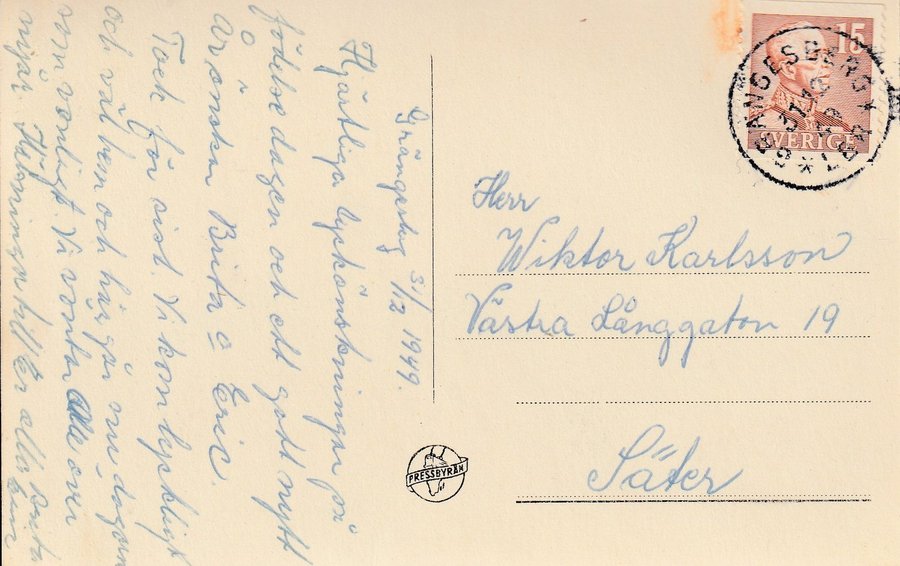 Grängesbg 31/12 1949.
Hjärtliga lyckönskningar på
födelsedagen och ett gott nytt
År önskar Brita o Eric.
Tack för sist. Vi kom lyckligt
och väl hem och här går nu dagarna
som vanligt. Vi väntar Olle över
nyår. Hälsningar till Er alla
15
SVERIGE
GRÄNGESBERG 1
Herr
Wiktor Karlsson
Västra Långgatan 19
Säter
PRESSBYRÅN